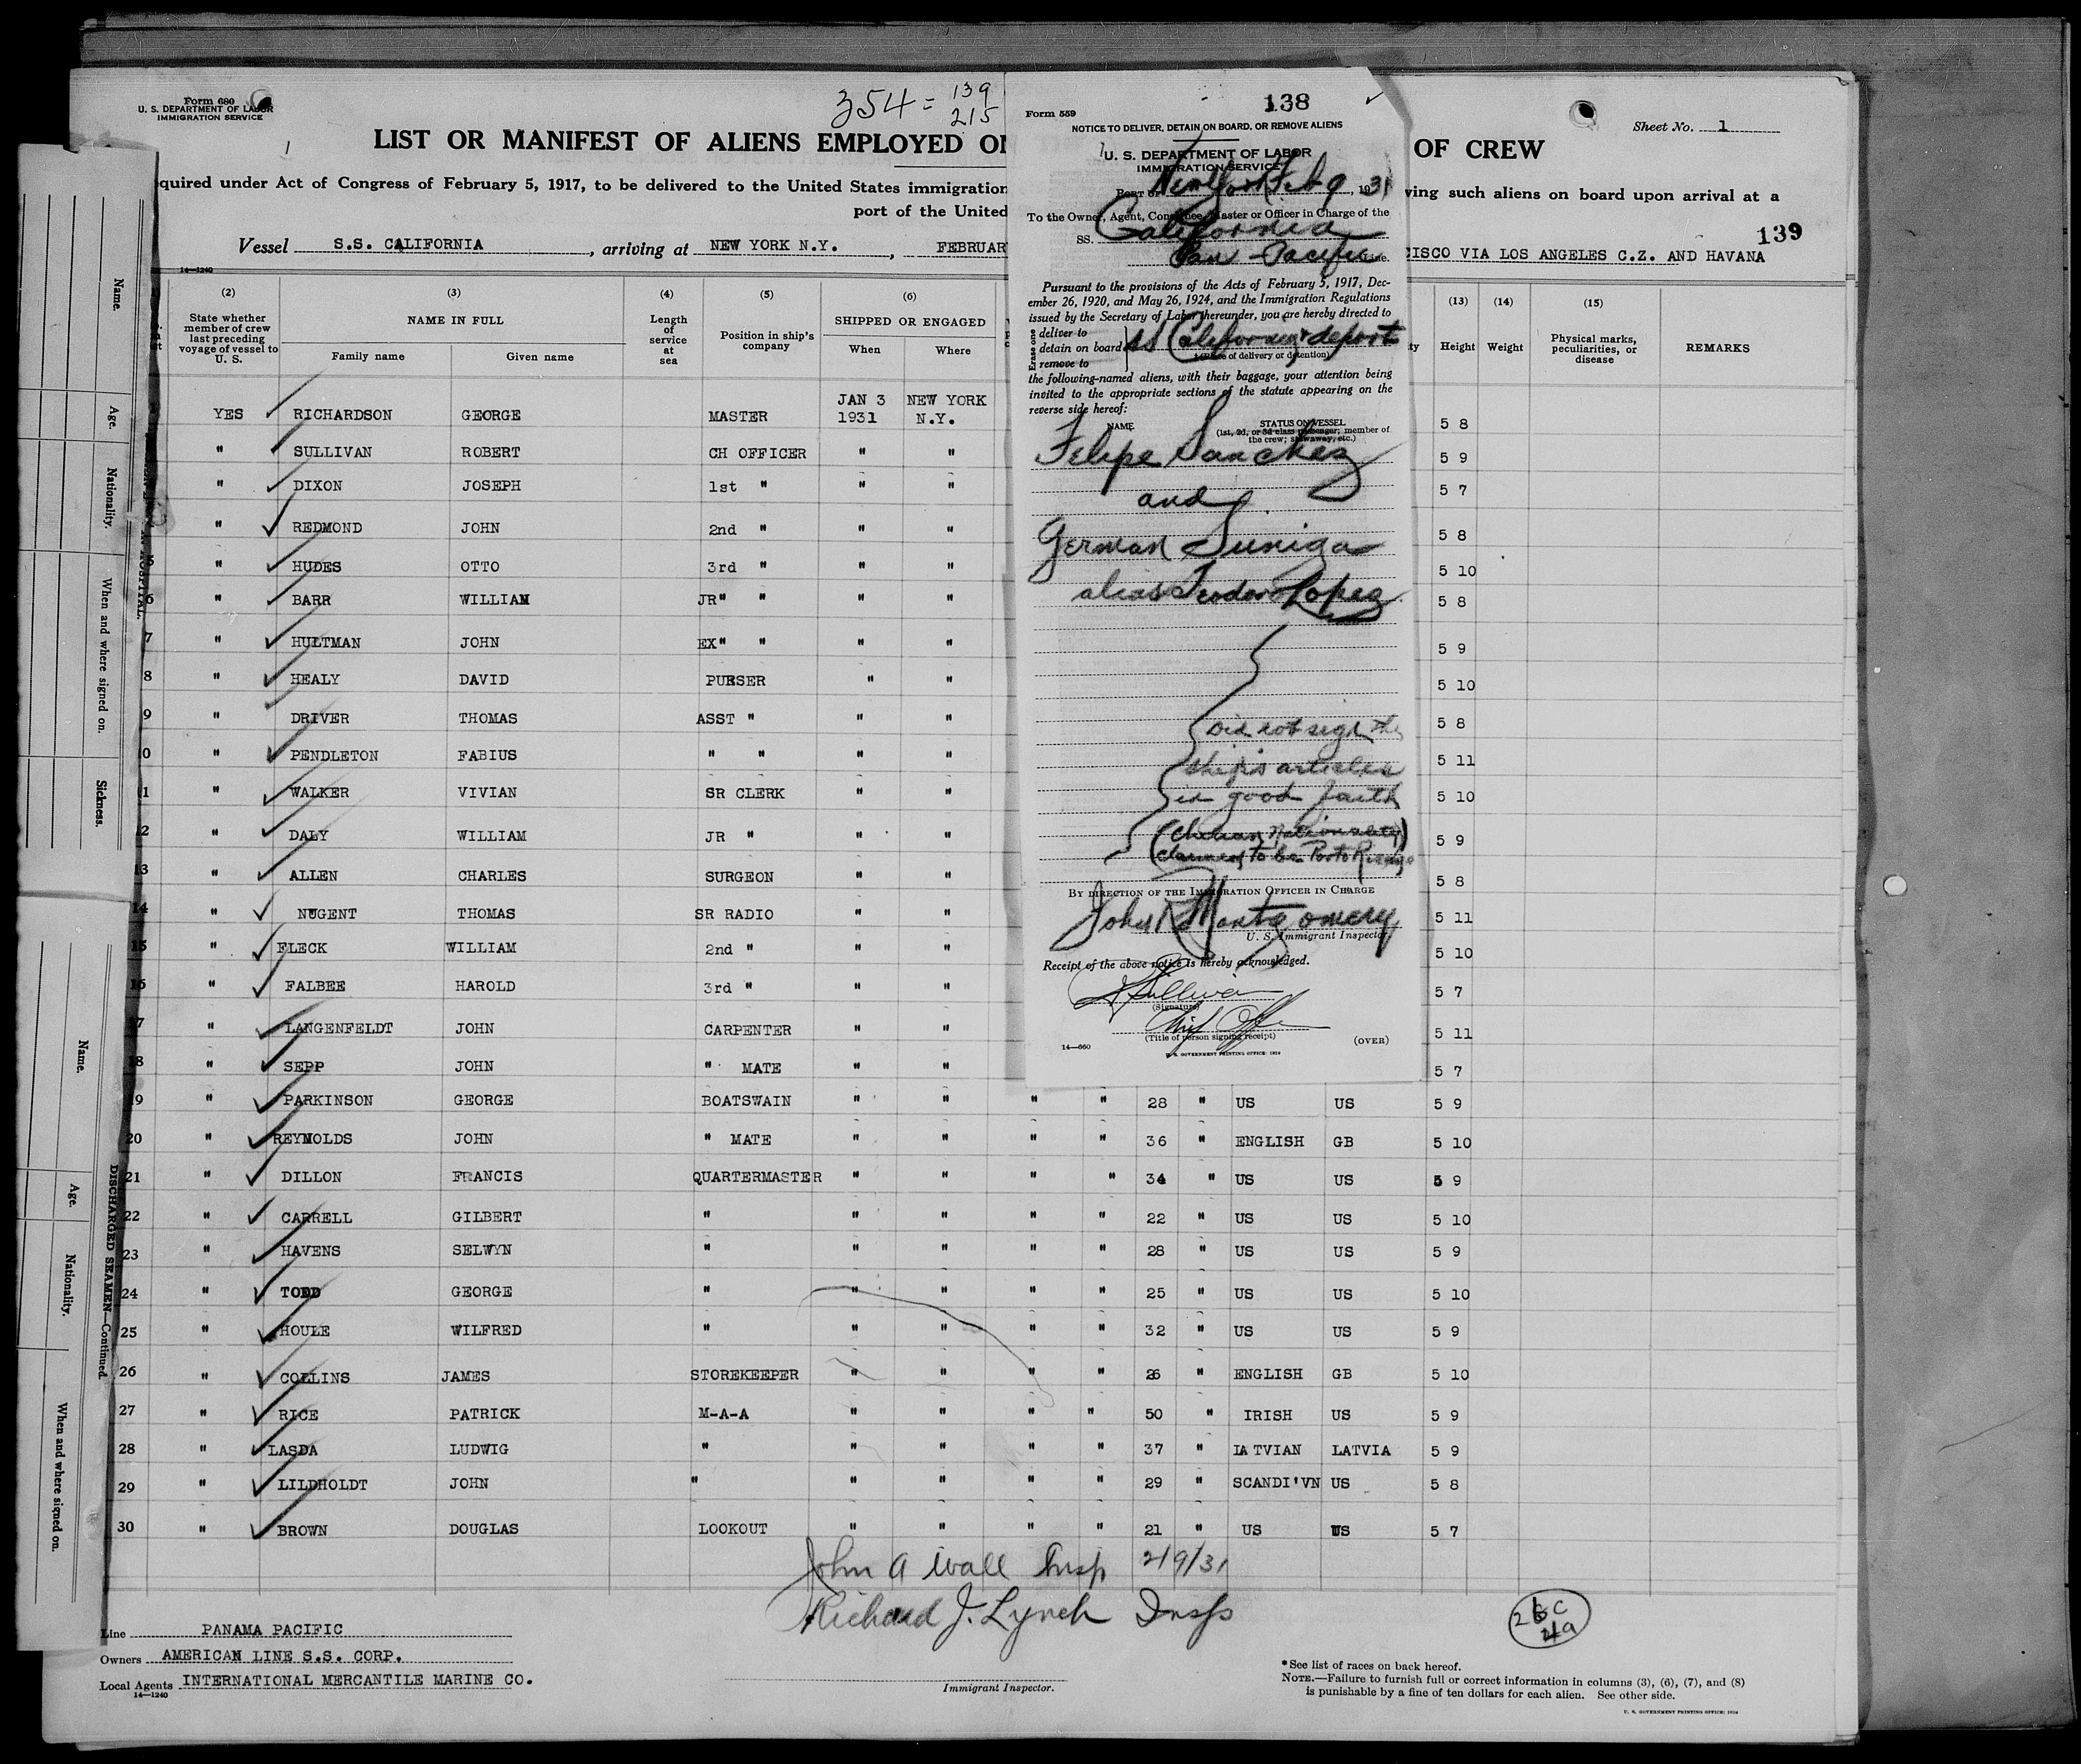 Form 680
U. S. DEPARTMENT OF LABOR
IMMIGRATION SERVICE
354 = 139
215
1
LIST OR MANIFEST OF ALIENS EMPLOYED ON
OF CREW
Sheet No. 1
quired under Act of Congress of February 5, 1917, to be delivered to the United States immigration
ving such aliens on board upon arrival at a
port of the United
139
Vessel S.S. CALIFORNIA, arriving at NEW YORK N.Y., FEBRUAR
CISCO VIA LOS ANGELES C.Z. AND HAVANA
14—1240
(2) (3) (4) (5) (6) (13) (14) (15)
State whether member of crew last preceding voyage of vessel to U. S.
NAME IN FULL
Family name Given name
Length of service at sea
Position in ship's company
SHIPPED OR ENGAGED
When Where
Height Weight
Physical marks, peculiarities, or disease
REMARKS
YES RICHARDSON GEORGE MASTER JAN 3 1931 NEW YORK N.Y. 5 8
" SULLIVAN ROBERT CH OFFICER " " 5 9
" DIXON JOSEPH 1st " " " 5 7
" REDMOND JOHN 2nd " " " 5 8
5 " HUDES OTTO 3rd " " " 5 10
6 " BARR WILLIAM JR" " " " 5 8
7 " HULTMAN JOHN EX" " " " 5 9
8 " HEALY DAVID PURSER " " 5 10
9 " DRIVER THOMAS ASST " " " 5 8
0 " PENDLETON FABIUS " " " " 5 11
1 " WALKER VIVIAN SR CLERK " " 5 10
2 " DALY WILLIAM JR " " " 5 9
13 " ALLEN CHARLES SURGEON " " 5 8
14 " NUGENT THOMAS SR RADIO " " 5 11
15 " FLECK WILLIAM 2nd " " " 5 10
16 " FALBEE HAROLD 3rd " " " 5 7
17 " LANGENFELDT JOHN CARPENTER " " 5 11
18 " SEPP JOHN " MATE " " 5 7
19 " PARKINSON GEORGE BOATSWAIN " " " " 28 " US US 5 9
20 " REYNOLDS JOHN " MATE " " " " 36 " ENGLISH GB 5 10
21 " DILLON FRANCIS QUARTERMASTER " " " " 34 " US US 5 9
22 " CARRELL GILBERT " " " " " 22 " US US 5 10
23 " HAVENS SELWYN " " " " " 28 " US US 5 9
24 " TODD GEORGE " " " " " 25 " US US 5 10
25 " HOULE WILFRED " " " " " 32 " US US 5 9
26 " COLLINS JAMES STOREKEEPER " " " " 26 " ENGLISH GB 5 10
27 " RICE PATRICK M-A-A " " " " 50 " IRISH US 5 9
28 " LASDA LUDWIG " " " " " 37 " LATVIAN LATVIA 5 9
29 " LILDHOLDT JOHN " " " " " 29 " SCANDI'VN US 5 8
30 " BROWN DOUGLAS LOOKOUT " " " " 21 " US US 5 7
John A Wall Insp 2/9/31
Richard J. Lynch Insp
Line PANAMA PACIFIC
Owners AMERICAN LINE S.S. CORP.
Local Agents INTERNATIONAL MERCANTILE MARINE CO.
14—1240
Immigrant Inspector.
*See list of races on back hereof.
NOTE.—Failure to furnish full or correct information in columns (3), (6), (7), and (8)
is punishable by a fine of ten dollars for each alien. See other side.
U. S. GOVERNMENT PRINTING OFFICE: 1924
138
Form 559
NOTICE TO DELIVER, DETAIN ON BOARD, OR REMOVE ALIENS
U. S. DEPARTMENT OF LABOR
IMMIGRATION SERVICE
PORT OF New York Feb 9, 1931
To the Owner, Agent, Consignee, Master or Officer in Charge of the
SS. California
Pan-Pacific Line.
Pursuant to the provisions of the Acts of February 5, 1917, Dec-
ember 26, 1920, and May 26, 1924, and the Immigration Regulations
issued by the Secretary of Labor thereunder, you are hereby directed to
Erase one
deliver to
detain on board
remove to
SS California & deport
(Place of delivery or detention)
the following-named aliens, with their baggage, your attention being
invited to the appropriate sections of the statute appearing on the
reverse side hereof:
NAME STATUS ON VESSEL
(1st, 2d, or 3d class passenger; member of
the crew; stowaway, etc.)
Felipe Sanchez
and
German Suniga
alias Teodoro Lopez
Did not sign the
ship's articles
in good faith
(Chilean Nationality)
claimed to be Porto Ricans
BY DIRECTION OF THE IMMIGRATION OFFICER IN CHARGE
John R Montgomery
U. S. Immigrant Inspector
Receipt of the above notice is hereby acknowledged.
R Sullivan
(Signature)
Chief Officer
(Title of person signing receipt)
14—660
(OVER)
U. S. GOVERNMENT PRINTING OFFICE: 1929
Name.
Age.
Nationality.
When and where signed on.
Sickness.
IN HOSPITAL.
Name.
Age.
Nationality.
When and where signed on.
DISCHARGED SEAMEN—Continued.